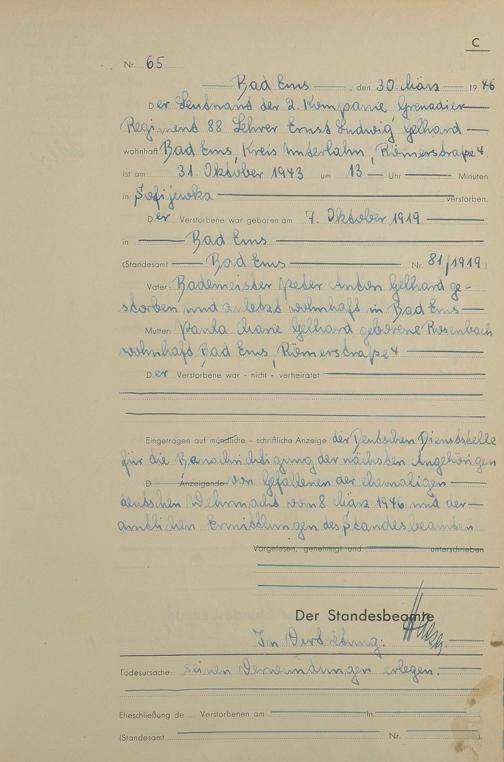 C
Nr. 65
Bad Ems, den 30. März 1946
Der Leutnand der 2. Kompanie Grenadier
Regiment 88 Lehrer Ernst Ludwig Gelhard
wohnhaft Bad Ems, Kreis Unterlahn, Römerstraße 4
ist am 31. Oktober 1943 um 13 Uhr Minuten
in Sofijewka verstorben.
Der Verstorbene war geboren am 7. Oktober 1919
in Bad Ems
(Standesamt Bad Ems Nr. 81/1919)
Vater: Bademeister Peter Anton Gelhard ge-
storben und zuletzt wohnhaft in Bad Ems
Mutter: Paula Marie Gelhard geborene Rosenbach
wohnhaft Bad Ems, Römerstraße 4
Der Verstorbene war - nicht - verheiratet
Eingetragen auf mündliche - schriftliche Anzeige der Deutschen Dienststelle
für die Benachrichtigung der nächsten Angehörigen
D Anzeigende von Gefallenen der ehemaligen
deutschen Wehrmacht vom 8. März 1946 und der
amtlichen Ermittlungen des Standesbeamten
Vorgelesen, genehmigt und unterschrieben
Der Standesbeamte
In Vertretung:
Todesursache: seinen Verwundungen erlegen.
Eheschließung de Verstorbenen am in
(Standesamt Nr. ).